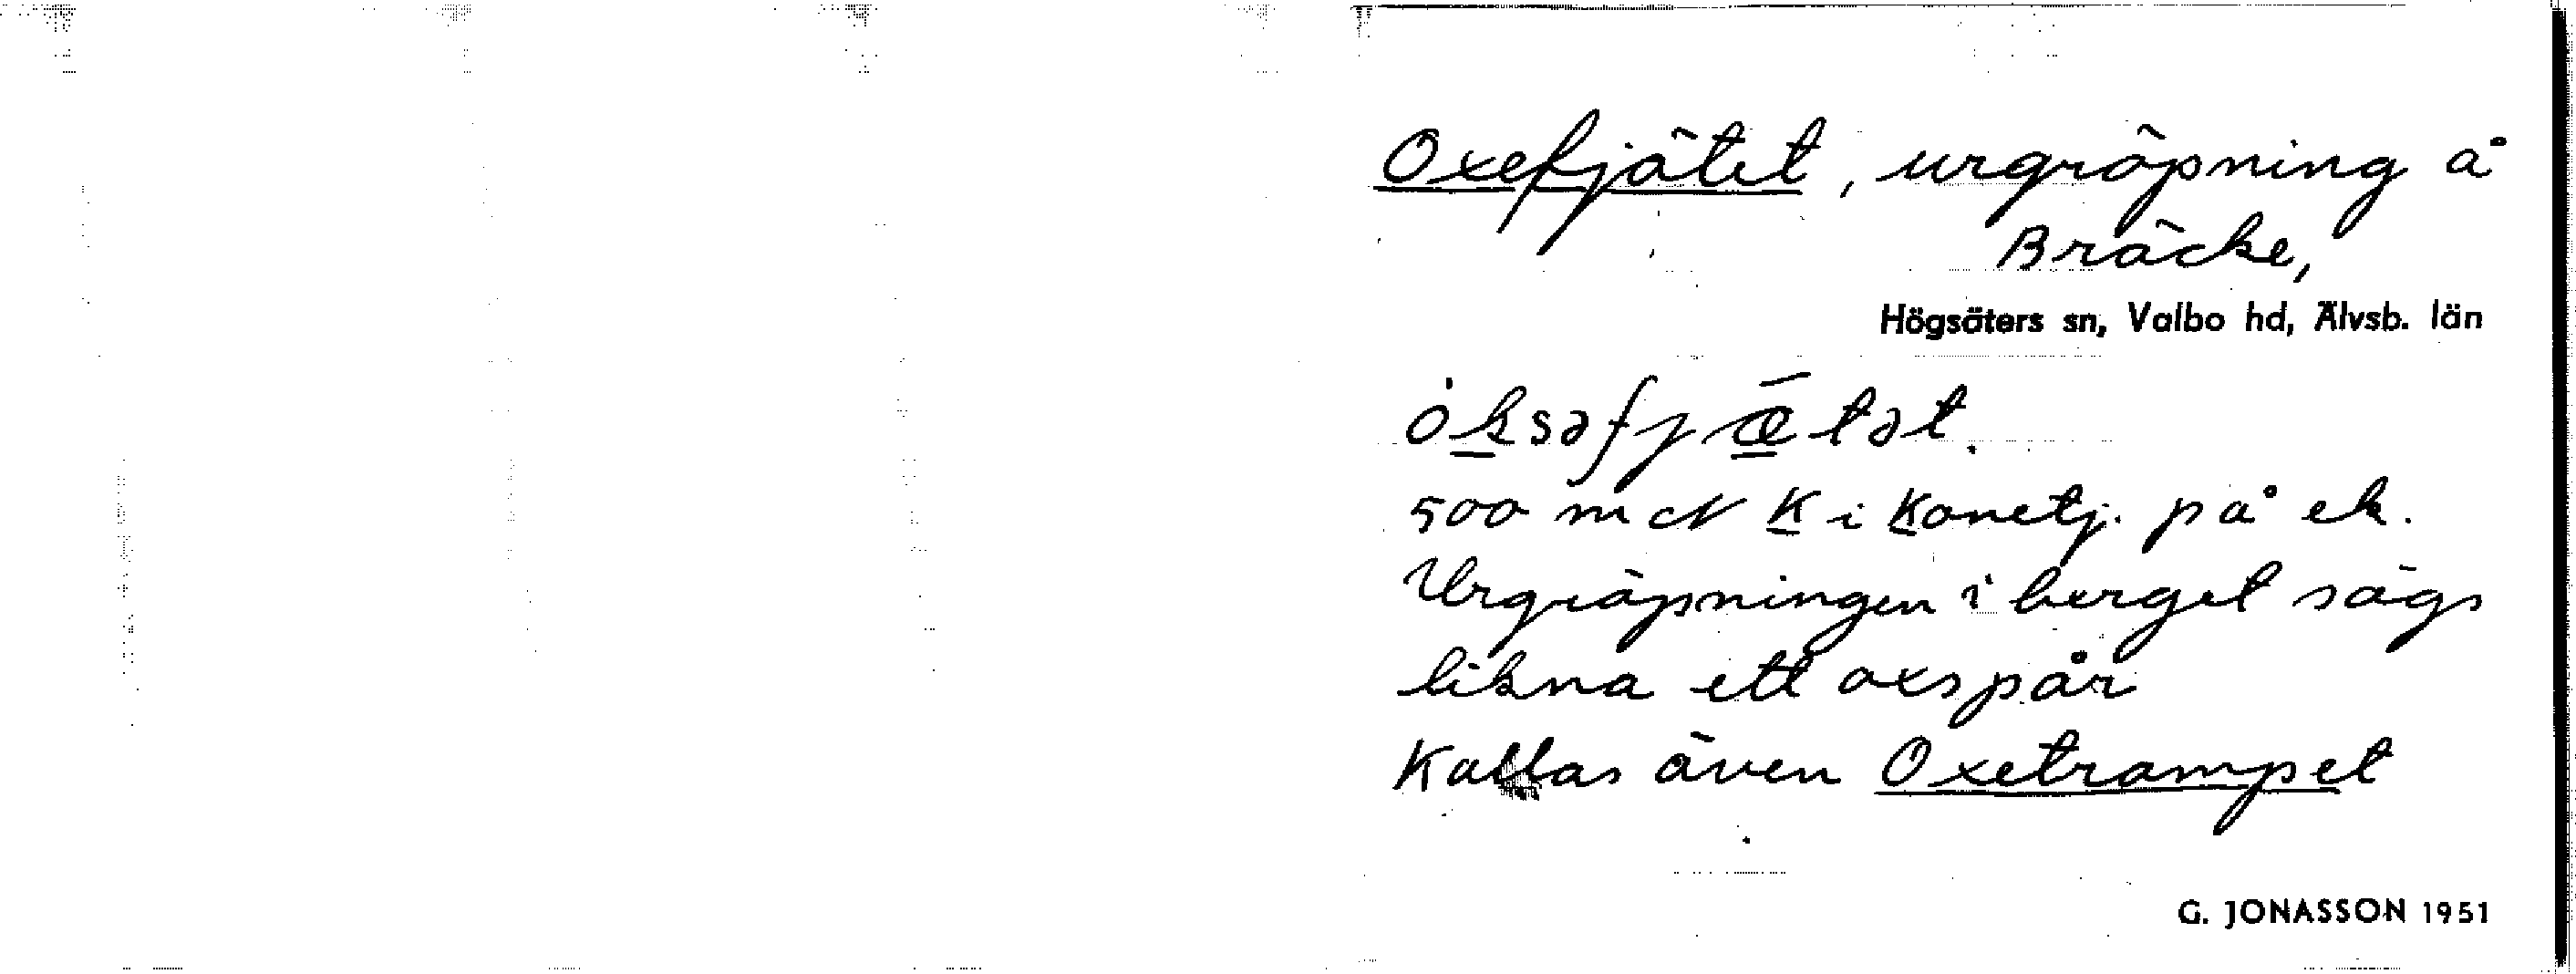 Oxefjätet, urgröpning å
Bräcke,
Högsäters sn, Valbo hd, Älvsb. län
òksəfjǣ̱tət.
500 m N K i Konetj. på ek.
Urgröpningen i berget sägs
likna ett oxspår
Kallas även Oxetrampet
G. JONASSON 1951